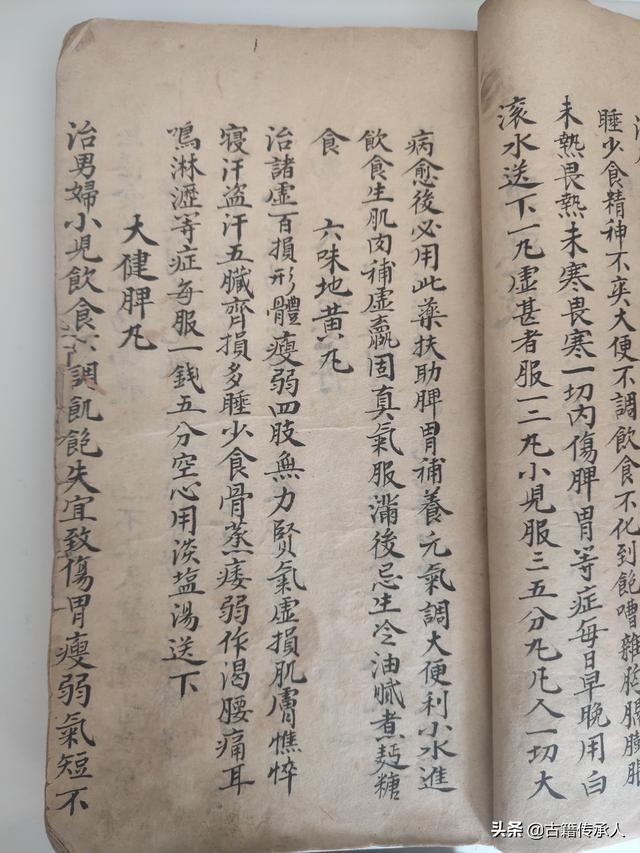 睡少食精神不奕大便不調飲食不化到飽嘈雜胸膈膨脹
未熱畏熱未寒畏寒一切內傷脾胃等症每日早晚用白
滚水送下一丸虛甚者服一二丸小児服三五分丸凡人一切大
病愈後必用此藥扶助脾胃補養元氣調大便利小水進
飲食生肌肉補虛羸固真氣服滿後忌生冷油膩煮麪糖
食 六味地黄丸
治諸虛百損形體瘦弱四肢無力賢氣虛損肌膚憔悴
寝汗盗汗五臟齊損多睡少食骨蒸痿弱作渴腰痛耳
鳴淋瀝等症每服一錢五分空心用淡塩湯送下
大健脾丸
治男婦小児飲食調飢飽失宜致傷胃瘦弱氣短不
头条 @古籍传承人